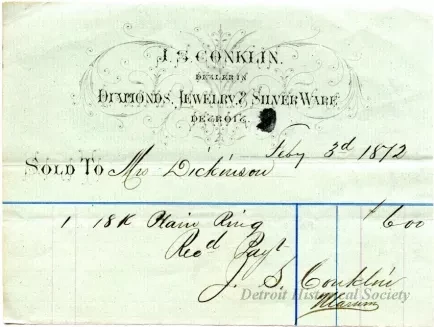 J. S. CONKLIN.
DEALER IN
DIAMONDS, JEWELRY, & SILVER WARE
DETROIT,
Feby 3d 1872
SOLD TO Mrs Dickinson
1 18K Plain Ring $6 00
Recd Payt
J. S. Conklin
Detroit Historical Society